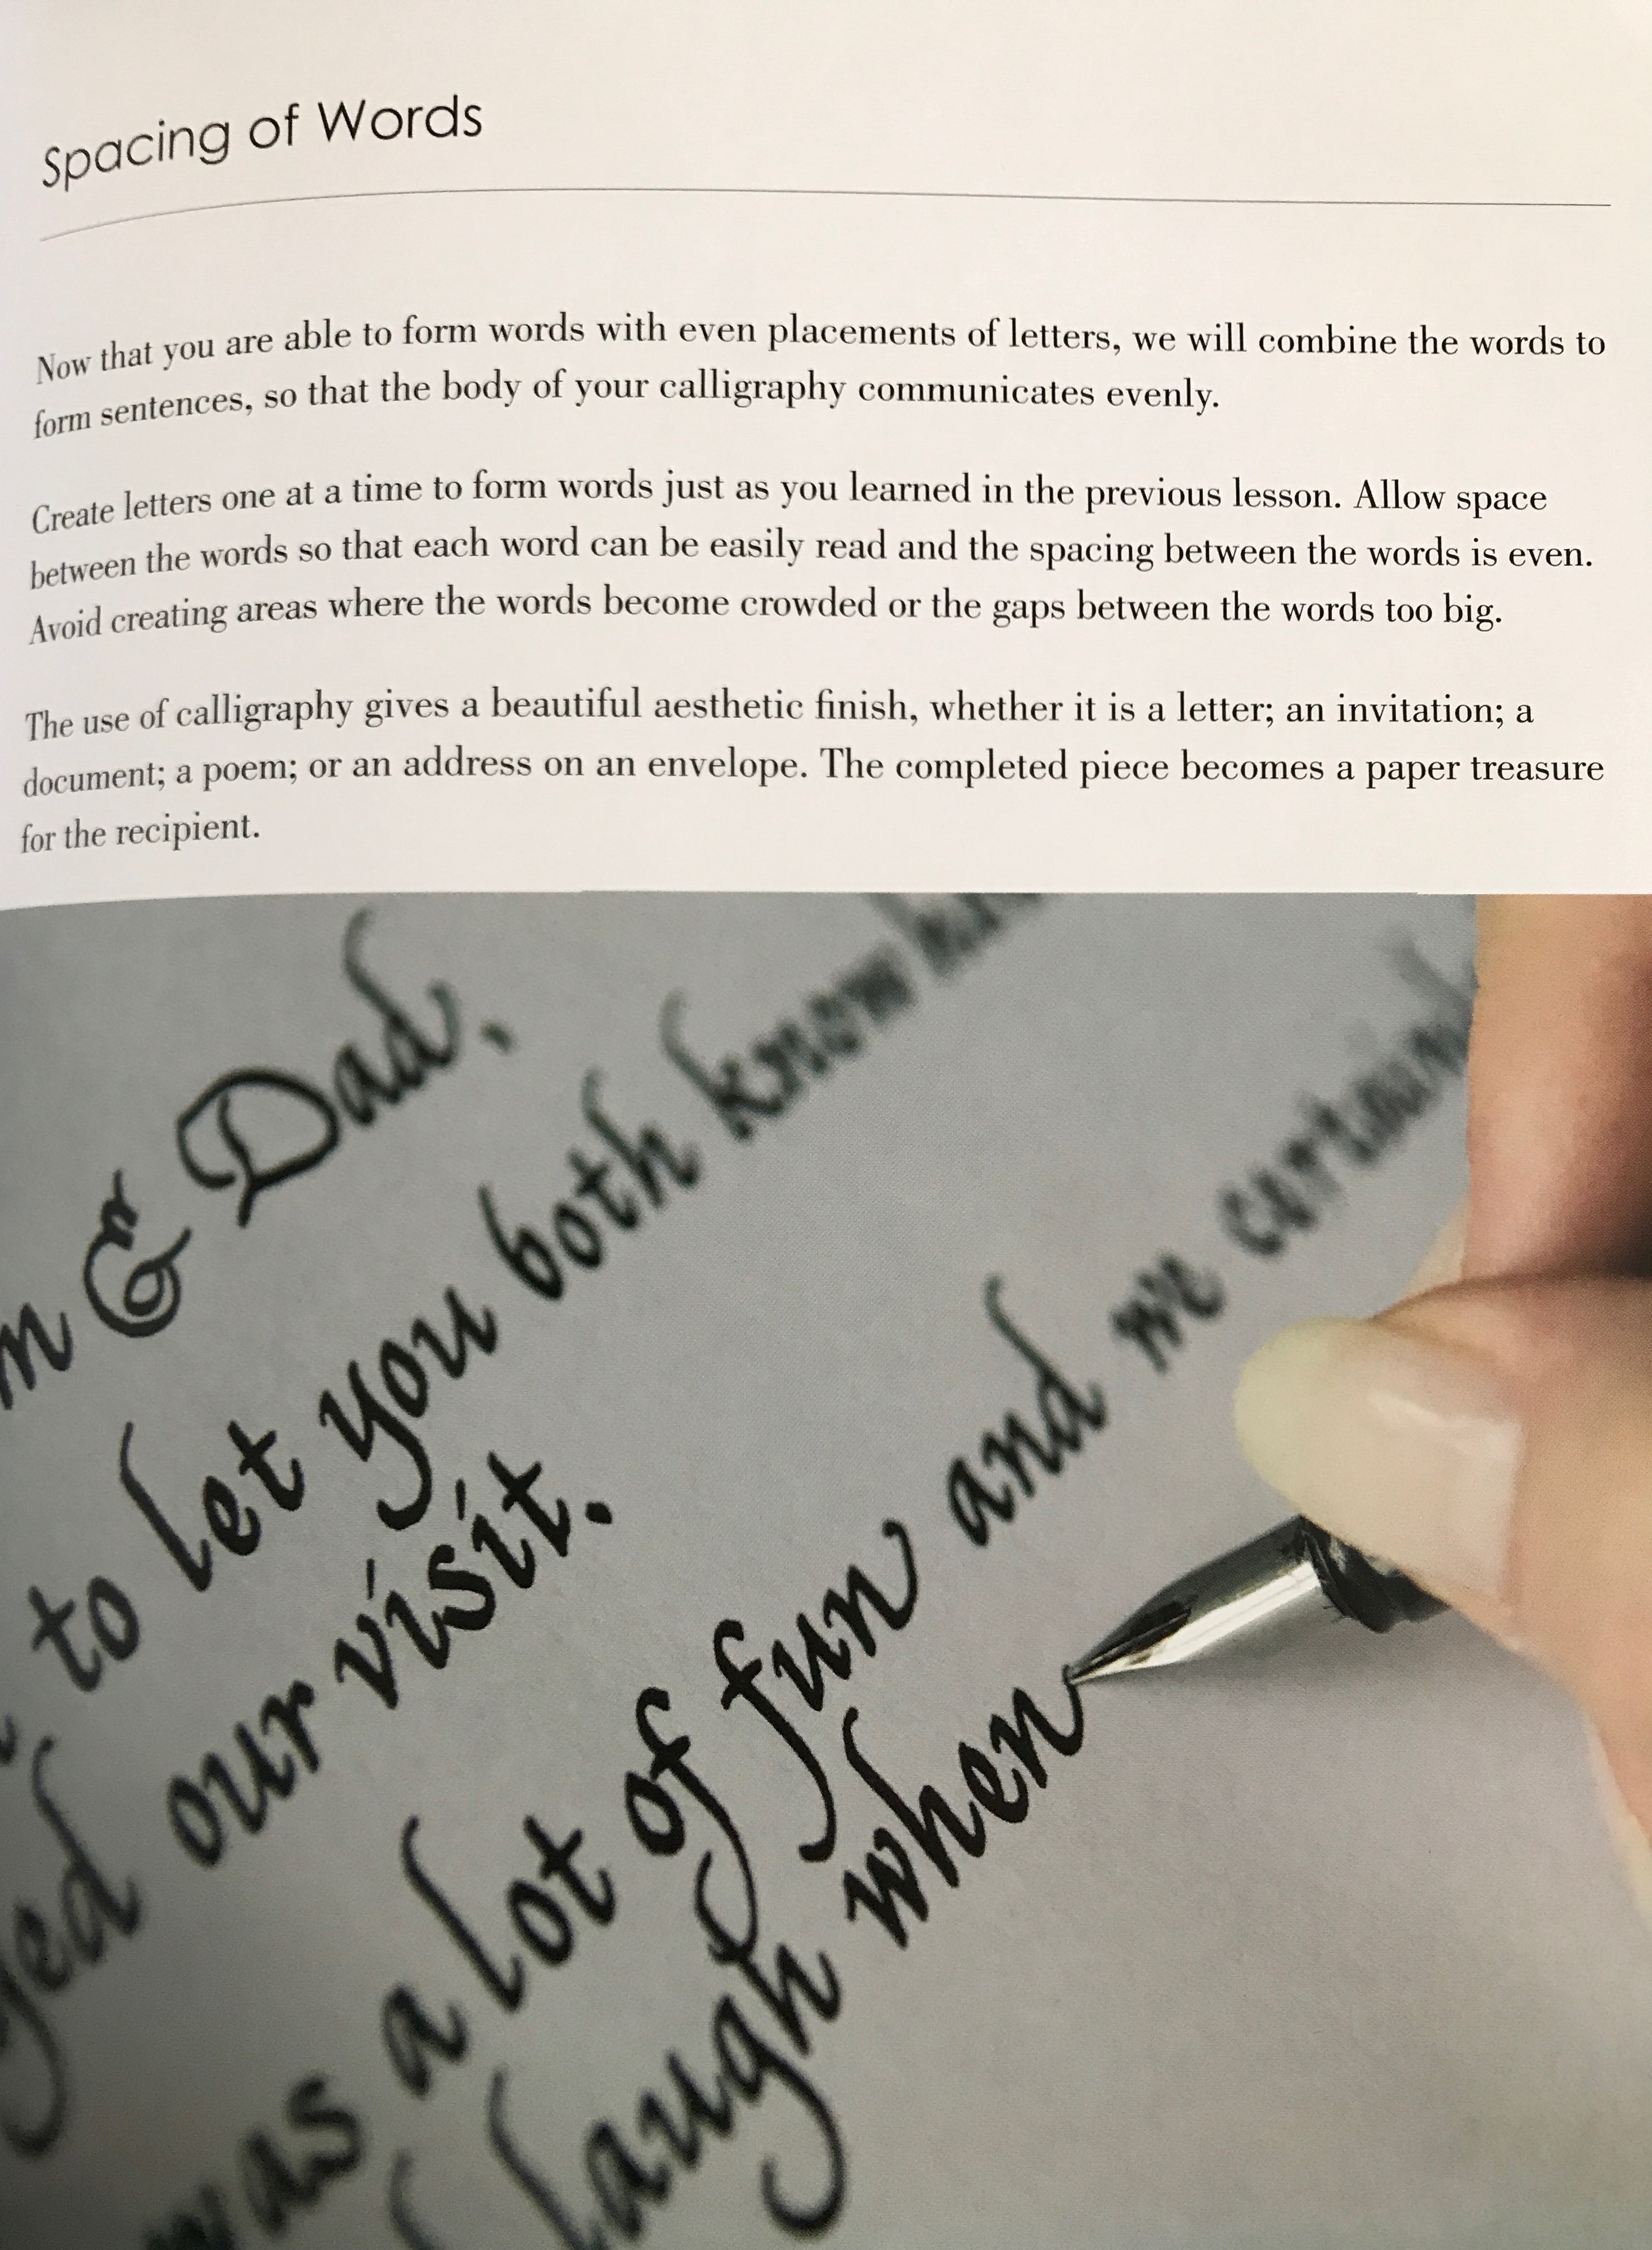 Spacing of Words
Now that you are able to form words with even placements of letters, we will combine the words to
form sentences, so that the body of your calligraphy communicates evenly.
Create letters one at a time to form words just as you learned in the previous lesson. Allow space
between the words so that each word can be easily read and the spacing between the words is even.
Avoid creating areas where the words become crowded or the gaps between the words too big.
The use of calligraphy gives a beautiful aesthetic finish, whether it is a letter; an invitation; a
document; a poem; or an address on an envelope. The completed piece becomes a paper treasure
for the recipient.
& Dad,
to let you both know
our visit.
was a lot of fun and
laugh when